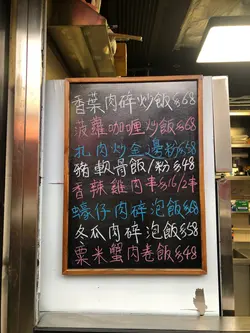 香葉肉碎炒飯$68
菠蘿咖喱炒飯$68
扎肉炒金邊粉$58
豬軟骨飯/粉$48
香辣雞肉串$16/2串
蠔仔肉碎泡飯$58
冬瓜肉碎泡飯$58
粟米蟹肉卷飯$48